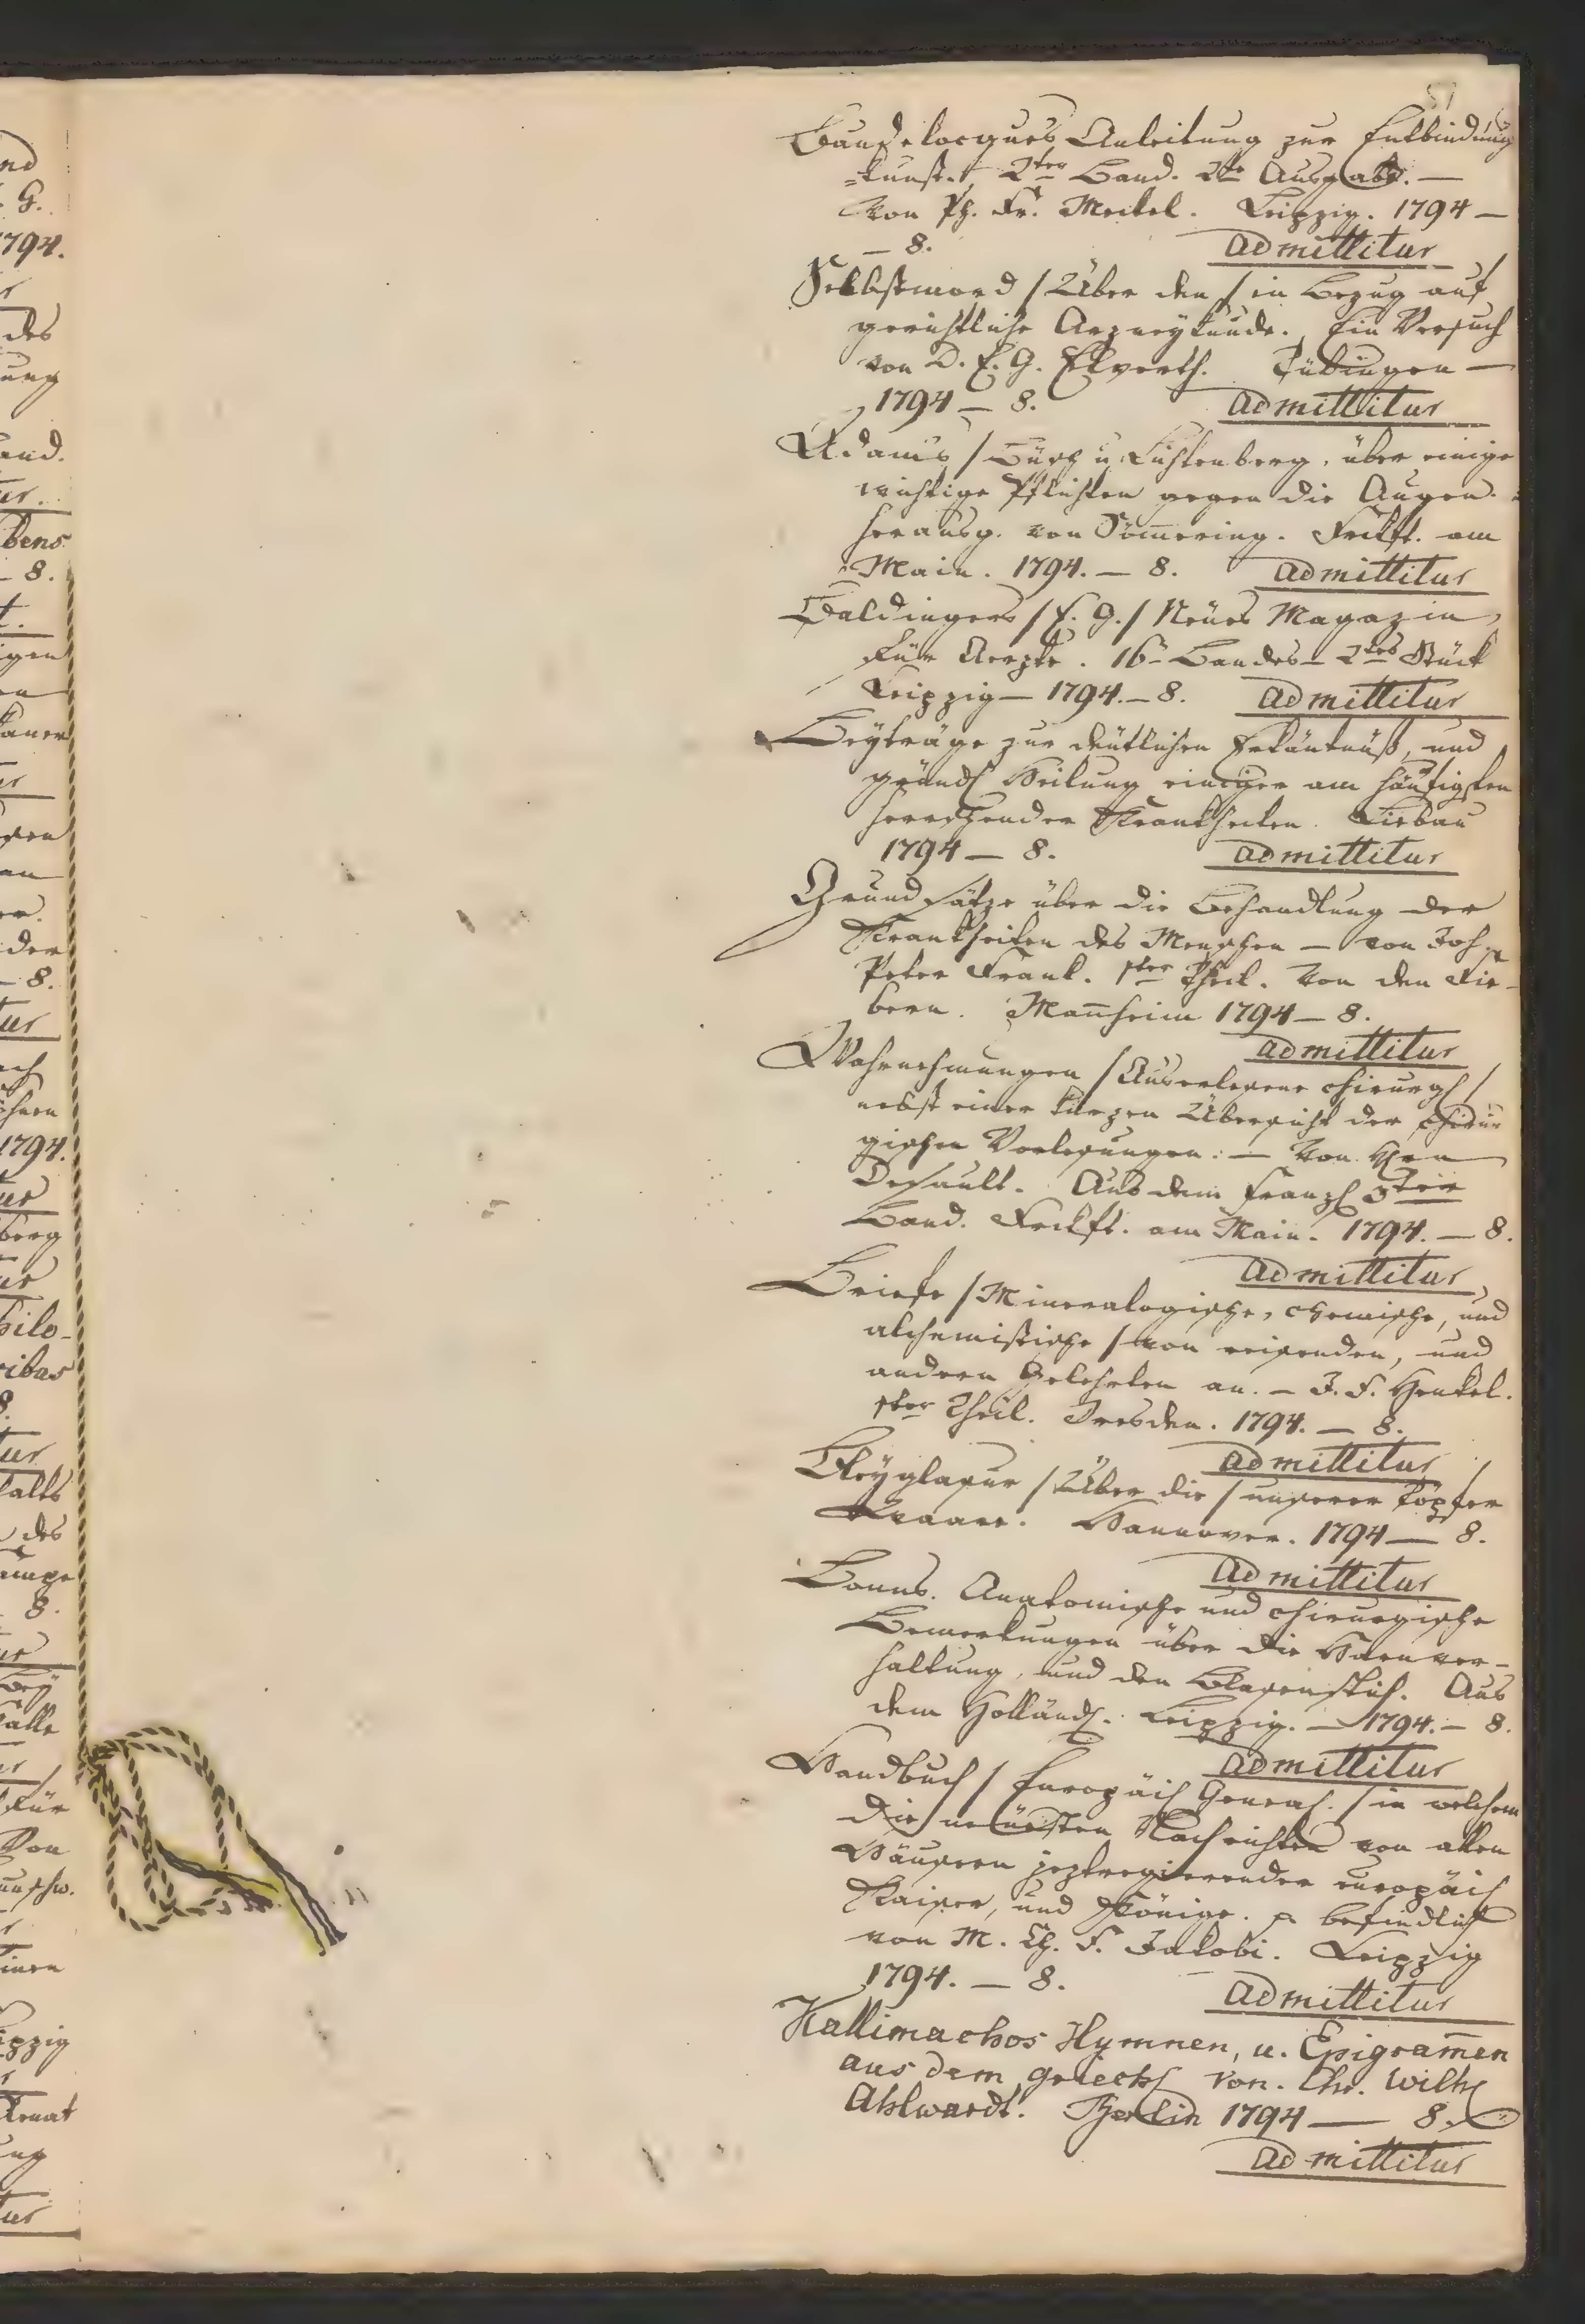 51
Baudelocques Anleitung zur Entbindung
=kunst. 2ter Band. 2te Ausgabe. —
Von Ph. Fr. Meckel. Leipzig. 1794 —
— 8. admittitur
Selbstmord / Über den / in Bezug auf
gerichtliche Arzneykunde. Ein Versuch
von D. E. G. Elwerth. Tübingen —
1794 — 8. admittitur
Adams / Büsch u. Lichtenberg, über einige
wichtige Pflichten gegen die Augen.
herausg. von Sömering. Frckft. am
Main. 1794. — 8. admittitur
Baldingers / E. G. / Neües Magazin
für Aerzte. 16n Bandes — 2tes Stück
Leipzig — 1794. — 8. admittitur
Beyträge zur deütlichen Erkäntnüß, und
gründl Heilung einiger am häufigsten
herrschender Krankheiten. Liebau
1794 — 8. admittitur
Grundsätze über die Behandlung der
Krankheiten des Menschen — von Joh.
Peter Frank. 1ter Theil. Von den Fie-
bern. Manheim 1794 — 8.
admittitur
Wahrnehmungen / Auserlesene chirurgl /
nebst einer kurzen Übersicht der chirur
gischen Vorlesungen. — Von Hrn
Default. Aus dem Franzl 3ter
Band. Frckft. am Main. 1794. — 8.
admittitur
Briefe / Mineralogische, chemische, und
alchemistische / von reisenden, und
andern Gelehrten an. — J. F. Henkel.
1ter Theil. Dresden. 1794. — 8.
admittitur
Bleyglasur / Über die / unserer Töpfer
Waare. Hannover. 1794 — 8.
admittitur
Bonns. Anatomische und chirurgische
Bemerkungen über die Harnver-
haltung, und den Blasenstich. Aus
dem Holländ. Leipzig. — 1794. — 8.
admittitur
Handbuch / Europäisch Geneal. / in welchem
die neüesten Nachrichten von allen
Häusern jeztregierender europäisch
Kaiser, und Könige. befindlich
von M. Ch. F. Jakobi. Leipzig
1794. — 8. admittitur
Kallimachos Hymnen, u. Epigramen
aus dem griechl von. Chr. Wilhl
Ahlwardt. Berlin 1794 — 8.
admittitur